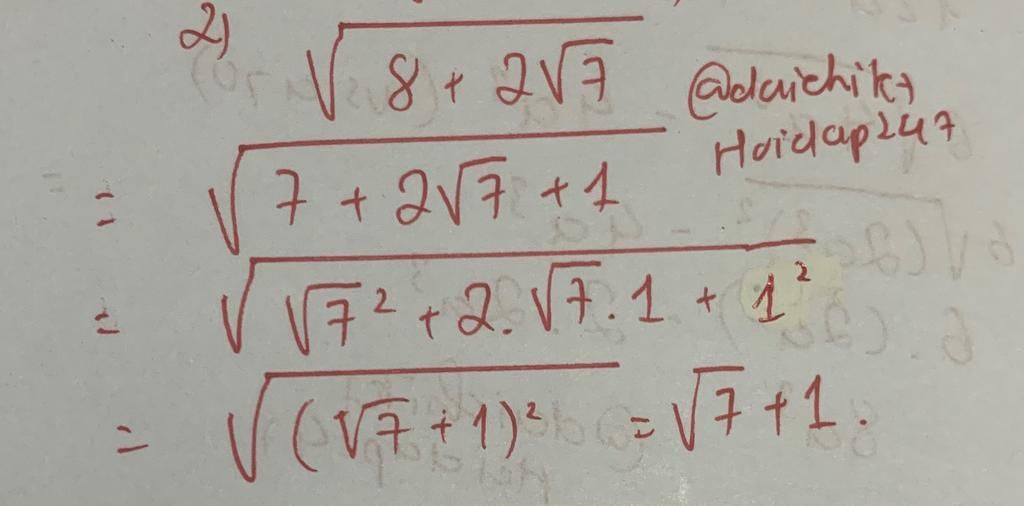 2) √(8 + 2√7)
@daichik7
Hoidap247
= √(7 + 2√7 + 1)
= √(√7² + 2.√7.1 + 1²)
= √((√7 + 1)²) = √7 + 1.